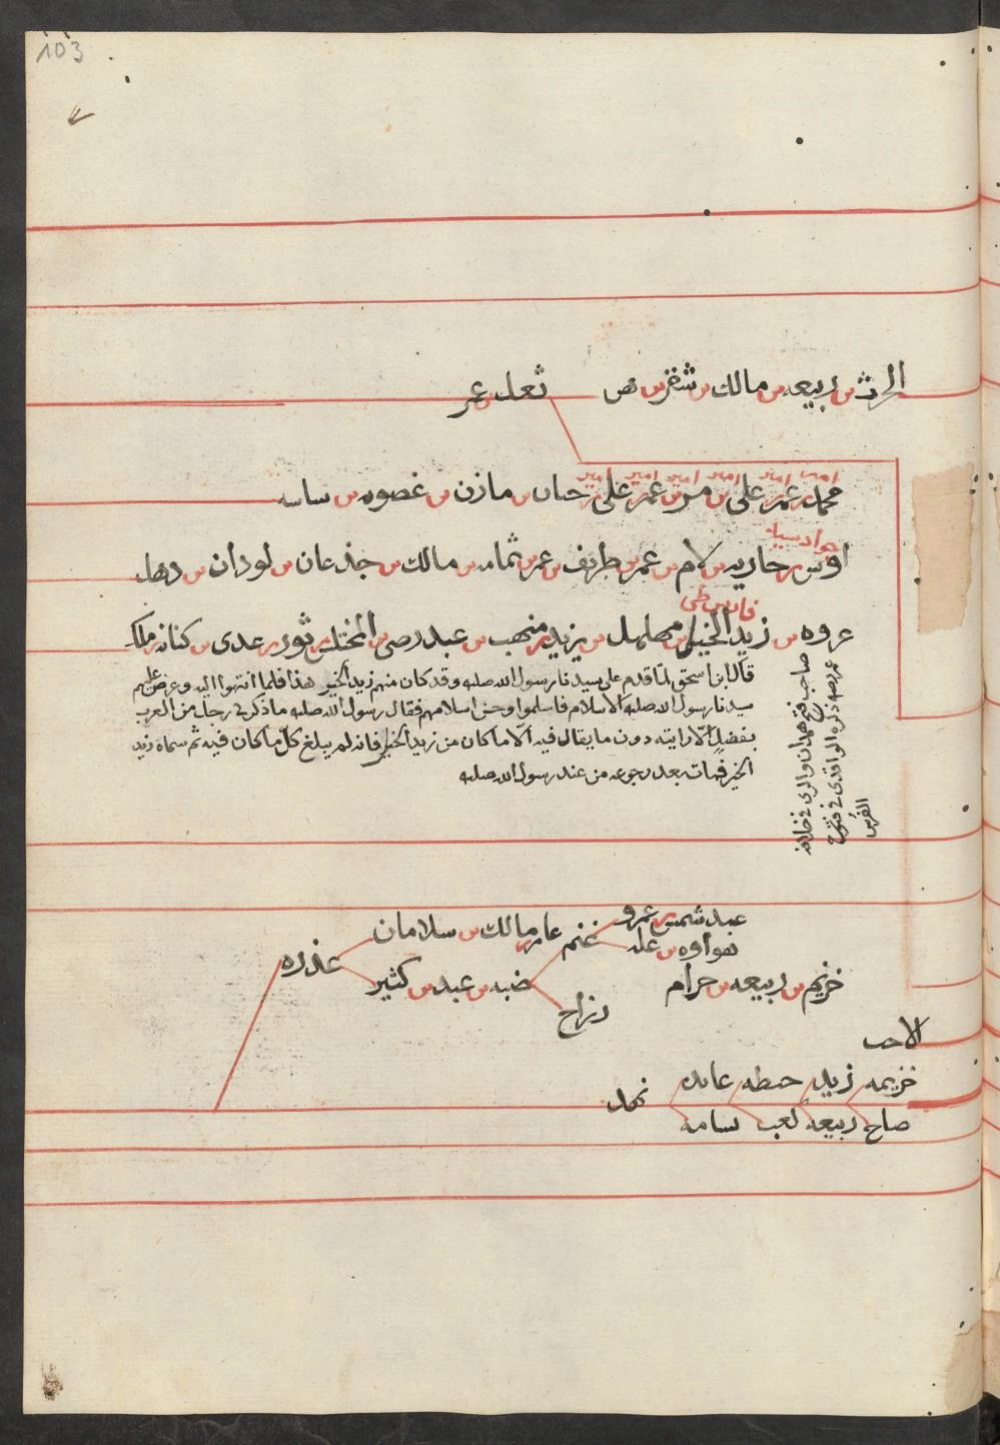 103
الحرث بن ربيعه بن مالك بن شقر بن
ثعل بن عمر
امير امير امير امير امير امير امير
محمد بن عمر بن على بن بن عمر بن على بن حسان بن مازن بن غصوبه بن
جواد سيد
اوس بن حاريه بن لام بن عمر بن طريف بن عمر بن ثمامه بن مالك بن جذعان بن لوذان بن
فارس طى
عروه بن زيد الخيل بن مهلهل بن يزيد بن منهب بن عبد رضى بن المختلس بن ثور بن عدى بن كنانه بن مالك
قال ابن اسحق لما قدم على سيدنا رسول الله صلعم وقد كان منهم زيد الخير هذا فلما انتهوا اليه وعرض عليهم
سيدنا رسول الله صلعم الاسلام فاسلموا وحسن اسلامهم فقال رسول الله صلعم ما ذكر لى رجل من العرب
بفضل الا رايته دون ما يقال فيه الا ما كان من زيد الخيل فانه لم يبلغ كل ما كان فيه ثم سماه زيد
الخير فمات بعد رجوعه من عند رسول الله صلعم
صاحب فتح همدان والرى فى خلافه
عمر رضه ذكره الواقدى فى فتوح
الفرس
عبد شمس بن عمرو
هو اوه بن
غنم
عامر بن مالك بن سلامان
عذره
ضبه بن عبد بن كثير
رزاح
خزيم بن ربيعه بن حرام
الاحب
خزيمه زيد حنظله عايده
نهد
صباح ربيعه كعب سامه